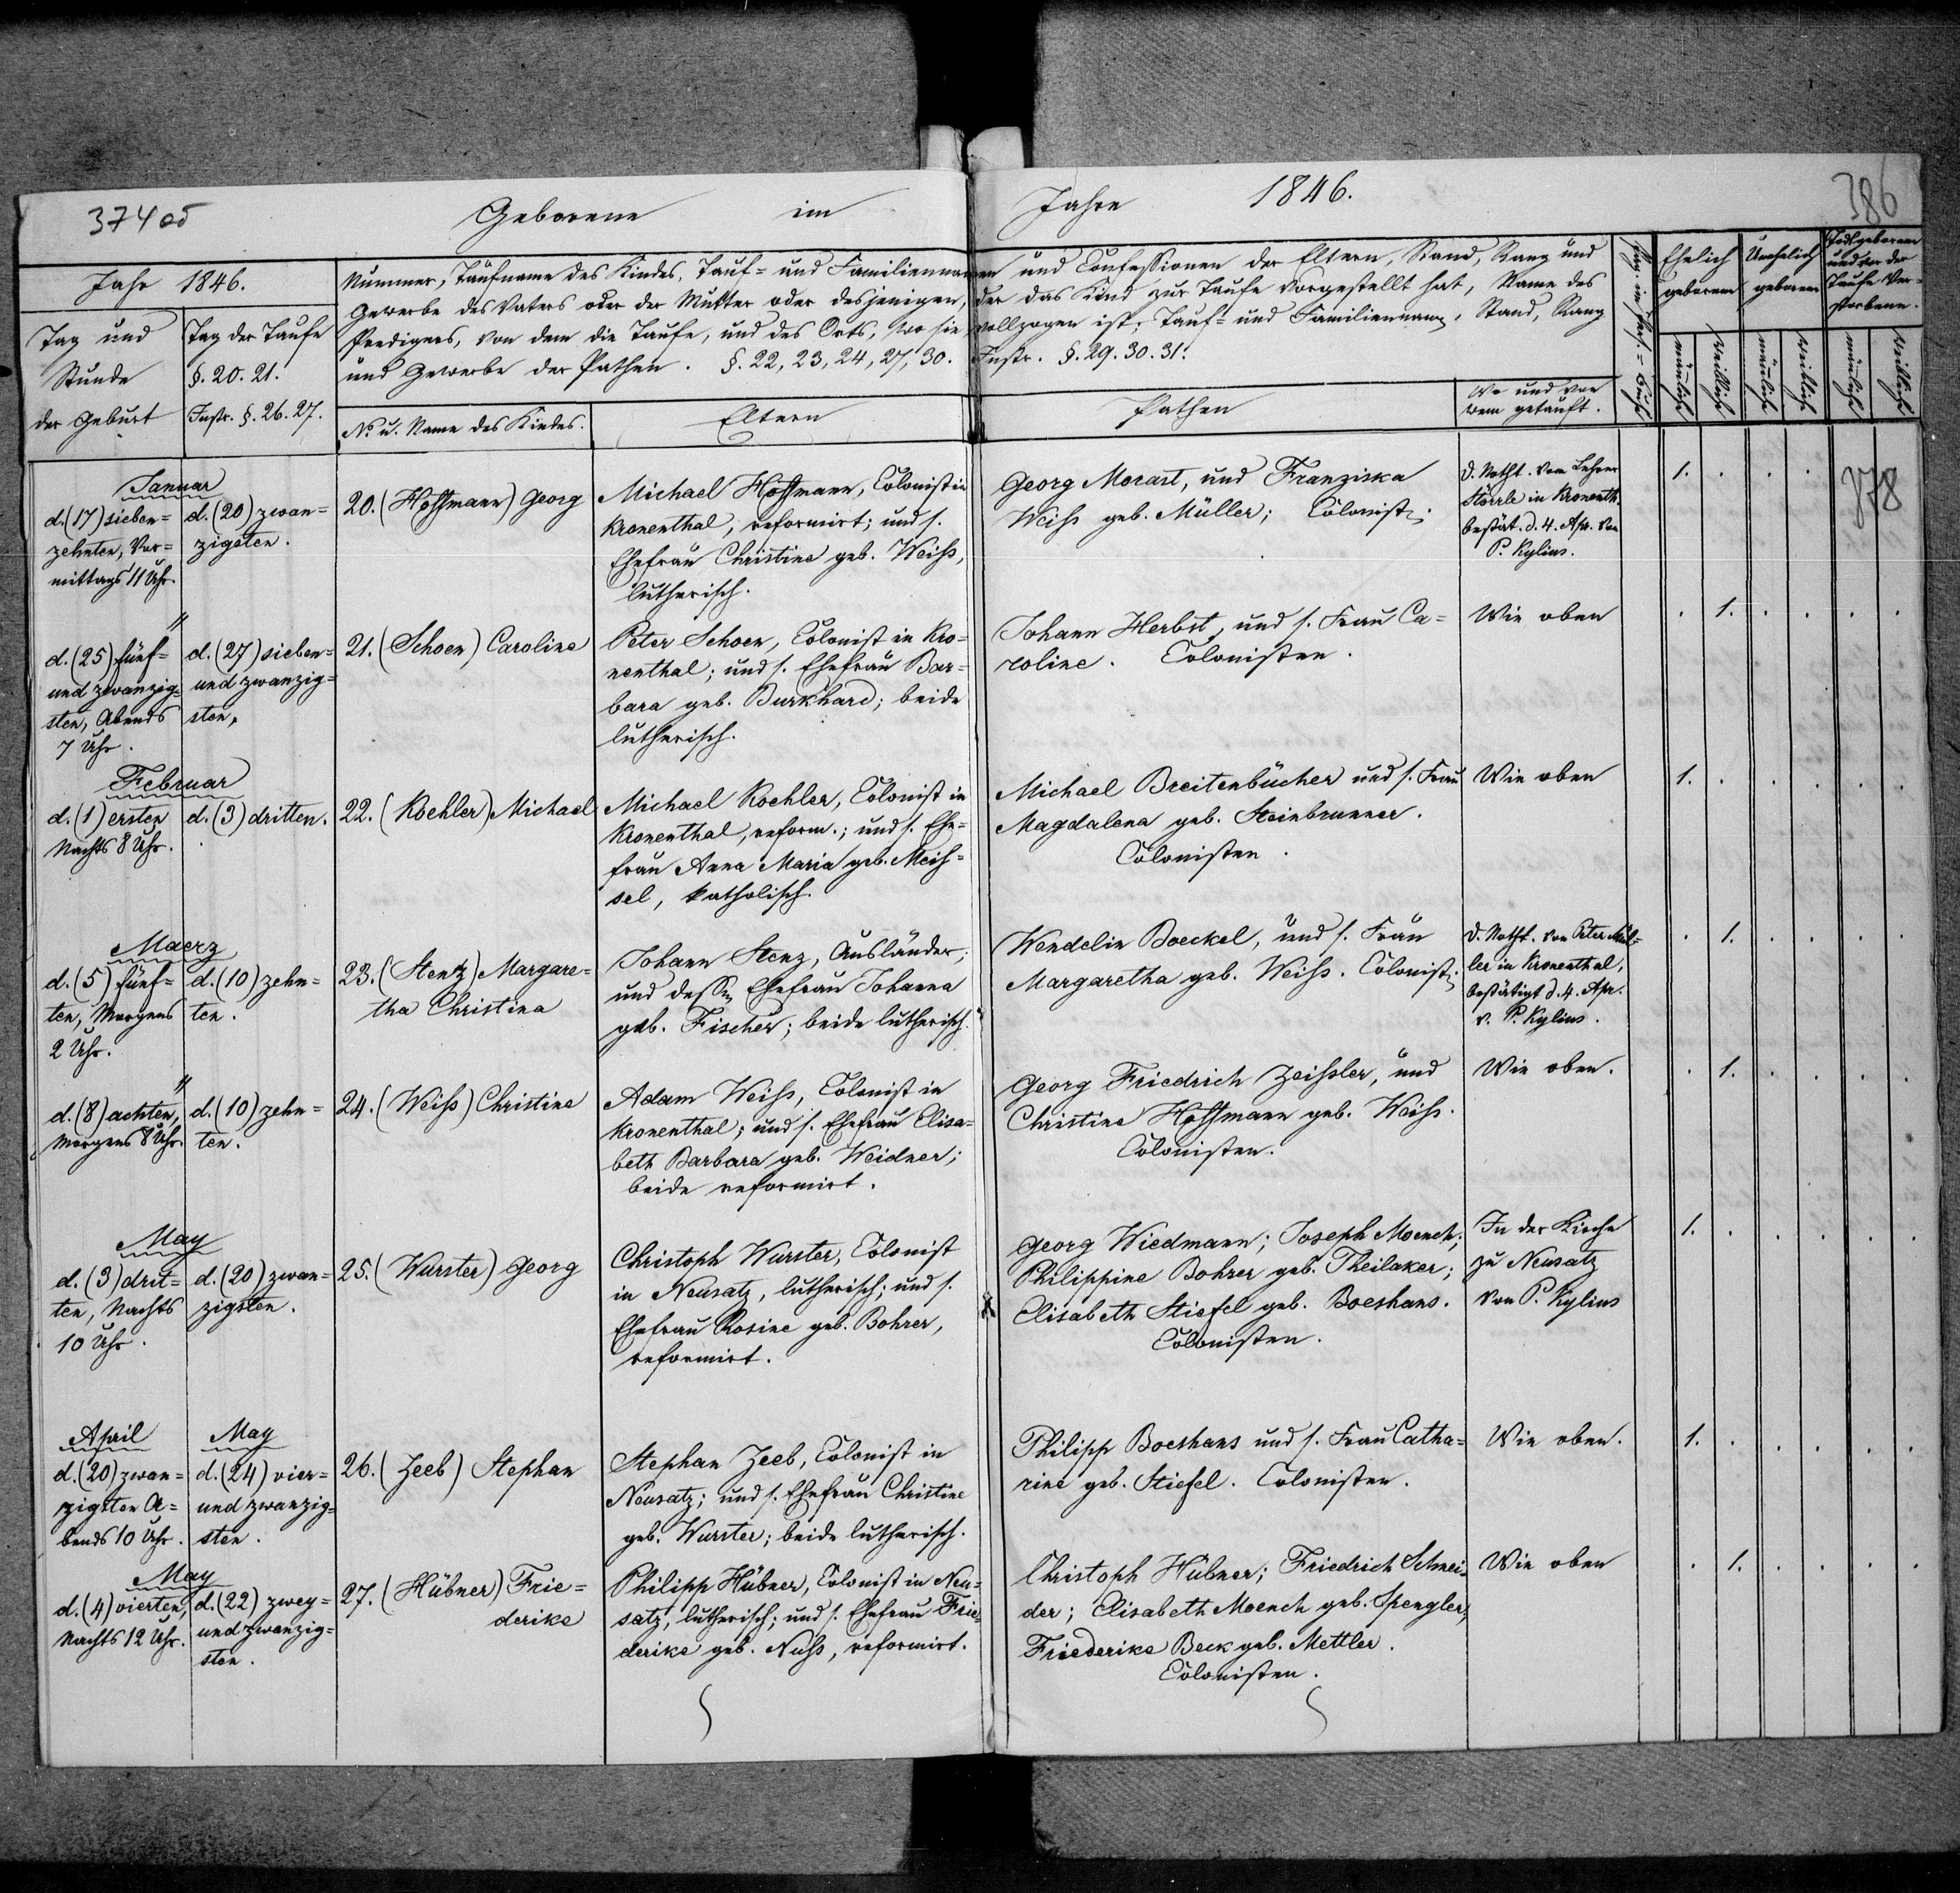 374 об
Geborene im Jahre 1846.
386
Jahr 1846.
Tag und
Stunde
der Geburt
Tag der Taufe
§. 20. 21.
Instr. §. 26. 27.
Nummer, Taufname des Kindes, Tauf= und Familiennamen und Confessionen der Eltern, Stand, Rang und
Gewerbe des Vaters oder der Mutter oder desjenigen, der das Kind zur Taufe vorgestellt hat, Name des
Predigers, von dem die Taufe, und des Orts, wo sie vollzogen ist; Tauf= und Familienname, Stand, Rang
und Gewerbe der Pathen. §. 22, 23, 24, 27, 30. Instr. §. 29. 30. 31.
No u. Name des Kindes.
Eltern
Pathen
Wo und von
wem getauft.
Ehelich
geboren
Unehelich
geboren
Todtgeborene
und vor der
Taufe Ver=
storbene.
männliche
weibliche
männliche
weibliche
männliche
weibliche
378
Januar
d. (17) sieben=
zehnten, Vor=
mittags 11 Uhr.
d. (20) zwan=
zigsten.
20. (Hoffmann) Georg
Michael Hoffmann, Colonist in
Kronenthal, reformirt; und s.
Ehefrau Christine geb. Weiss,
lutherisch.
Georg Morast, und Franziska
Weiss geb. Müller; Colonist.
d. Notht. vom Lehrer
Störrle in Kronenth.
bestät. d. 4. Apr. von
P. Kylius.
1.
"
d. (25) fünf=
und zwanzig=
sten, Abends
7 Uhr.
d. (27) sieben=
und zwanzig=
sten.
21. (Schoen) Caroline
Peter Schoen, Colonist in Kro=
nenthal; und s. Ehefrau Bar=
bara geb. Burkhard; beide
lutherisch.
Johann Herbst, und s. Frau Ca=
roline. Colonisten.
Wie oben
1.
Februar
d. (1) ersten
Nachts 8 Uhr.
d. (3) dritten.
22. (Koehler) Michael
Michael Koehler, Colonist in
Kronenthal, reform.; und s. Ehe=
frau Anna Maria geb. Meis=
sel, katholisch.
Michael Breitenbücher und s. Frau
Magdalena geb. Steinbrunner.
Colonisten.
Wie oben
1.
Maerz
d. (5) fünf=
ten, Morgens
2 Uhr.
d. (10) zehn=
ten.
23. (Stentz) Margare=
tha Christina
Johann Stenz, Ausländer;
und dessen Ehefrau Johanna
geb. Fischer; beide lutherisch.
Wendelin Boeckel, und s. Frau
Margaretha geb. Weiss. Colonist.
d. Notht. von Peter Mül=
ler in Kronenthal,
bestätigt d. 4. Apr.
v. P. Kylius.
1.
"
d. (8) achten,
Morgens 8 Uhr.
d. (10) zehn=
ten.
24. (Weiss) Christine
Adam Weiss, Colonist in
Kronenthal; und s. Ehefrau Elisa=
beth Barbara geb. Weidner;
beide reformirt.
Georg Friedrich Zeissler, und
Christine Hoffmann geb. Weiss.
Colonisten.
Wie oben.
1.
May
d. (3) drit=
ten, Nachts
10 Uhr.
d. (20) zwan=
zigsten.
25. (Wurster) Georg
Christoph Wurster, Colonist
in Neusatz, lutherisch; und s.
Ehefrau Rosine geb. Bohrer,
reformirt.
Georg Wiedmann; Joseph Moench;
Philippine Bohrer geb. Theilaker;
Elisabeth Stiefel geb. Boeshans.
Colonisten.
In der Kirche
zu Neusatz
von P. Kylius
1.
April
d. (20) zwan=
zigsten A=
bends 10 Uhr.
May
d. (24) vier=
und zwanzig=
sten.
26. (Zeeb) Stephan
Stephan Zeeb, Colonist in
Neusatz; und s. Ehefrau Christine
geb. Wurster; beide lutherisch.
Philipp Boeshans und s. Frau Catha=
rine geb. Stiefel. Colonisten.
Wie oben.
1.
May
d. (4) vierten,
Nachts 12 Uhr.
d. (22) zwey=
und zwanzig=
sten.
27. (Hübner) Frie=
derike
Philipp Hübner, Colonist in Neu=
satz, lutherisch; und s. Ehefrau Frie=
derike geb. Nuss, reformirt.
Christoph Hübner; Friedrich Schnei=
der; Elisabeth Moench geb. Spengler;
Friederike Beck geb. Mettler.
Colonisten.
Wie oben
1.